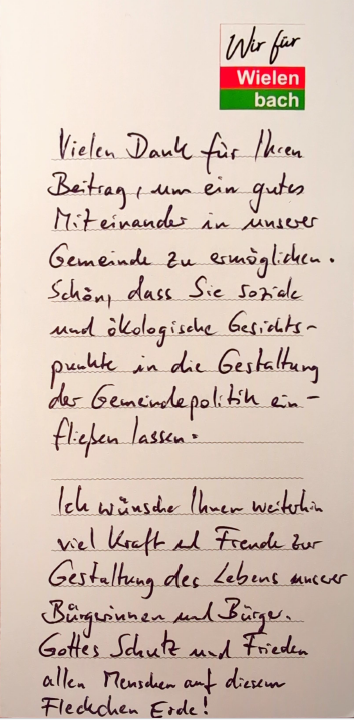 Wir für
Wielen
bach
Vielen Dank für Ihren
Beitrag, um ein gutes
Miteinander in unserer
Gemeinde zu ermöglichen.
Schön, dass Sie soziale
und ökologische Gesichts-
punkte in die Gestaltung
der Gemeindepolitik ein-
fließen lassen.
Ich wünsche Ihnen weiterhin
viel Kraft und Freude zur
Gestaltung des Lebens unserer
Bürgerinnen und Bürger.
Gottes Schutz und Frieden
allen Menschen auf diesem
Fleckchen Erde!